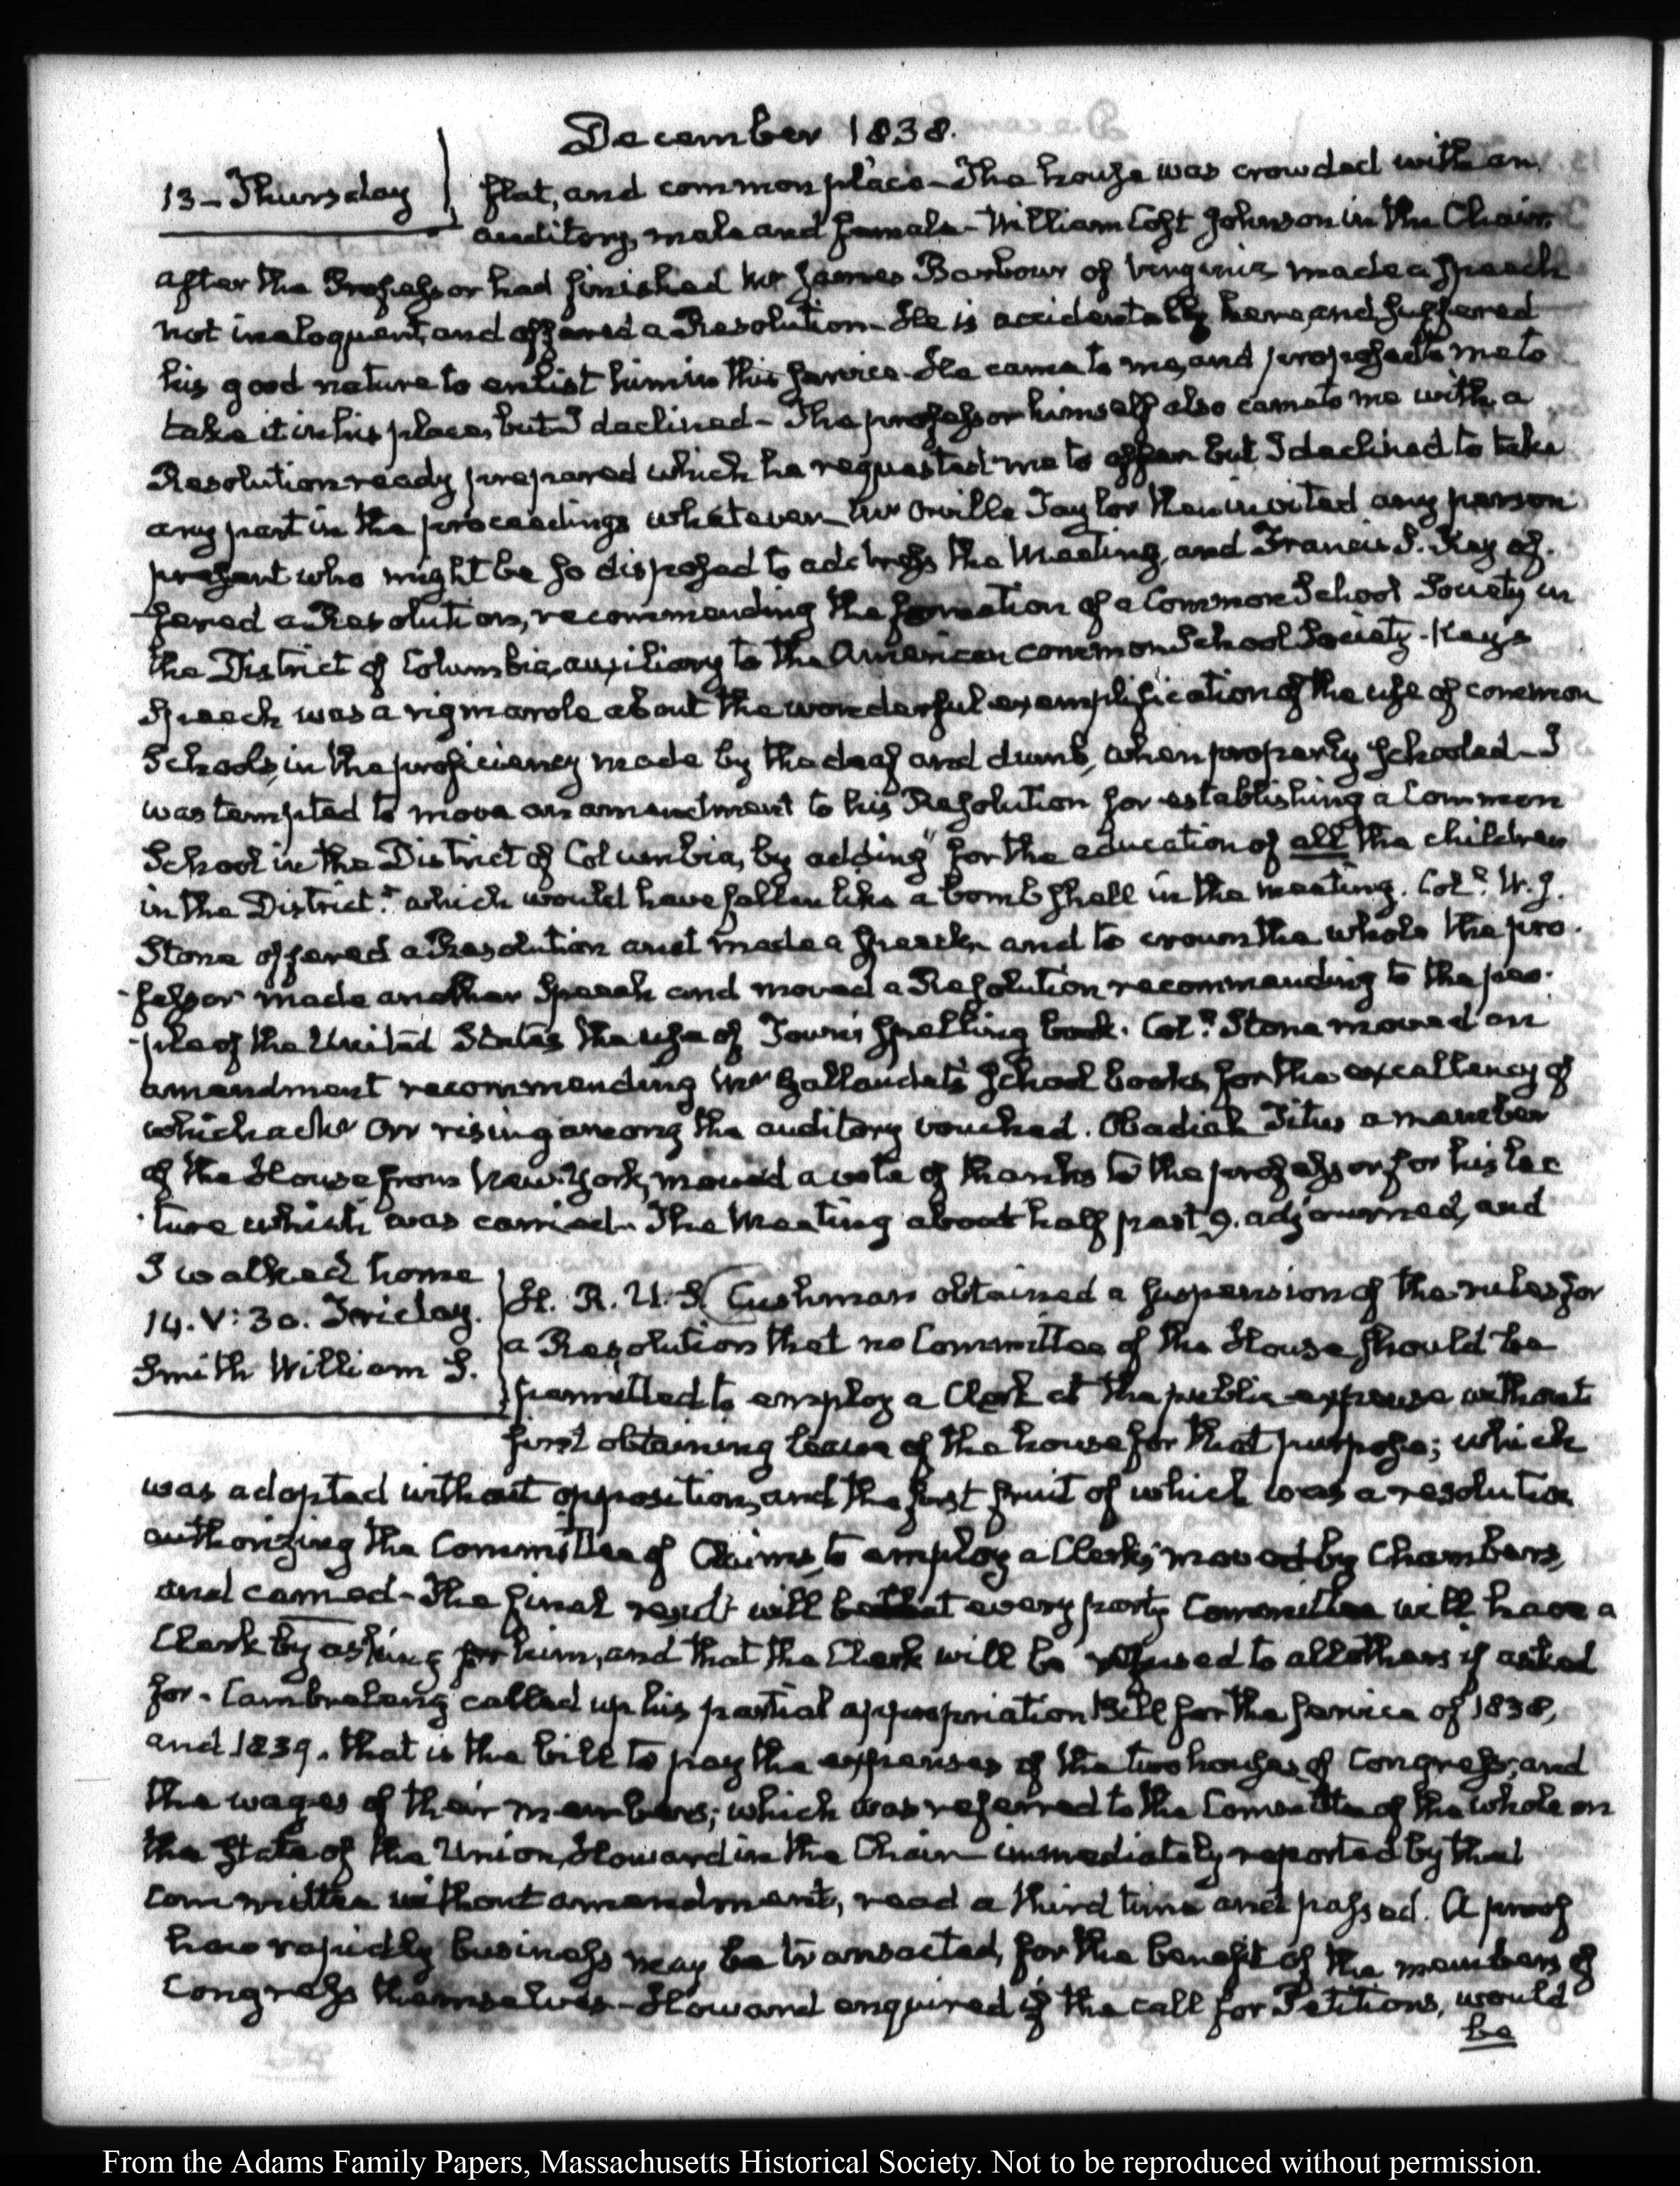 December 1838.
13 - Thursday
flat, and common place - The house was crowded with an
auditory, male and female - William Cost Johnson in the Chair.
after the Professor had finished Mr James Barbour of Virginia made a speech
not ineloquent, and offered a Resolution - He is accidentally here, and suffered
his good nature to enlist him in this service - He came to me, and proposed to me to
take it in his place, but I declined - The professor himself also came to me with a
Resolution ready prepared which he requested me to offer but I declined to take
any part in the proceedings whatever - Mr Orville Taylor then invited any person
present who might be so disposed to address the Meeting, and Francis S. Key of-
-fered a Resolution, recommending the formation of a Common School Society in
the District of Columbia, auxiliary to the American common School Society - Key's
Speech was a rigmarole about the wonderful exemplification of the use of common
Schools, in the proficiency made by the deaf and dumb, when properly schooled - I
was tempted to move an amendment to his Resolution for establishing a Common
School in the District of Columbia, by adding "for the education of all the children
in the District." which would have fallen like a bomb shell in the meeting. Col? W. J.
Stone offered a Resolution and made a speech and to crown the whole the pro-
-fessor made another Speech and moved a Resolution recommending to the peo-
-ple of the United States the use of Town's spelling book. Col? Stone moved an
amendment recommending Mr Gallaudet's school books, for the excellency of
which a Mr Orr rising among the auditory vouched. Obadiah Titus a member
of the House from New-York, moved a vote of thanks to the professor for his lec
-ture which was carried - The Meeting about half past 9. adjourned, and
I walked home
14. V:30. Friday.
Smith William S.
H. R. U. S. Cushman obtained a suspension of the rules for
a Resolution that no Committee of the House should be
permitted to employ a Clerk at the public expense without
first obtaining leave of the house for that purpose; which
was adopted without opposition, and the first fruit of which was a resolution
authorizing the Committee of Claims, to employ a Clerk; moved by Chambers,
and carried - The final result will be that every party Committee will have a
Clerk by asking for him, and that the Clerk will be refused to all others if asked
for. Cambreleng called up his partial appropriation Bill for the service of 1838,
and 1839. that is the bill to pay the expenses of the two houses of Congress, and
the wages of their members; which was referred to the Committee of the whole on
the state of the Union, Howard in the Chair - immediately reported by that
Committee without amendment, read a third time and passed. A proof
how rapidly business may be transacted, for the benefit of the members of
Congress themselves - Howard enquired if the call for Petitions, would
be
From the Adams Family Papers, Massachusetts Historical Society. Not to be reproduced without permission.